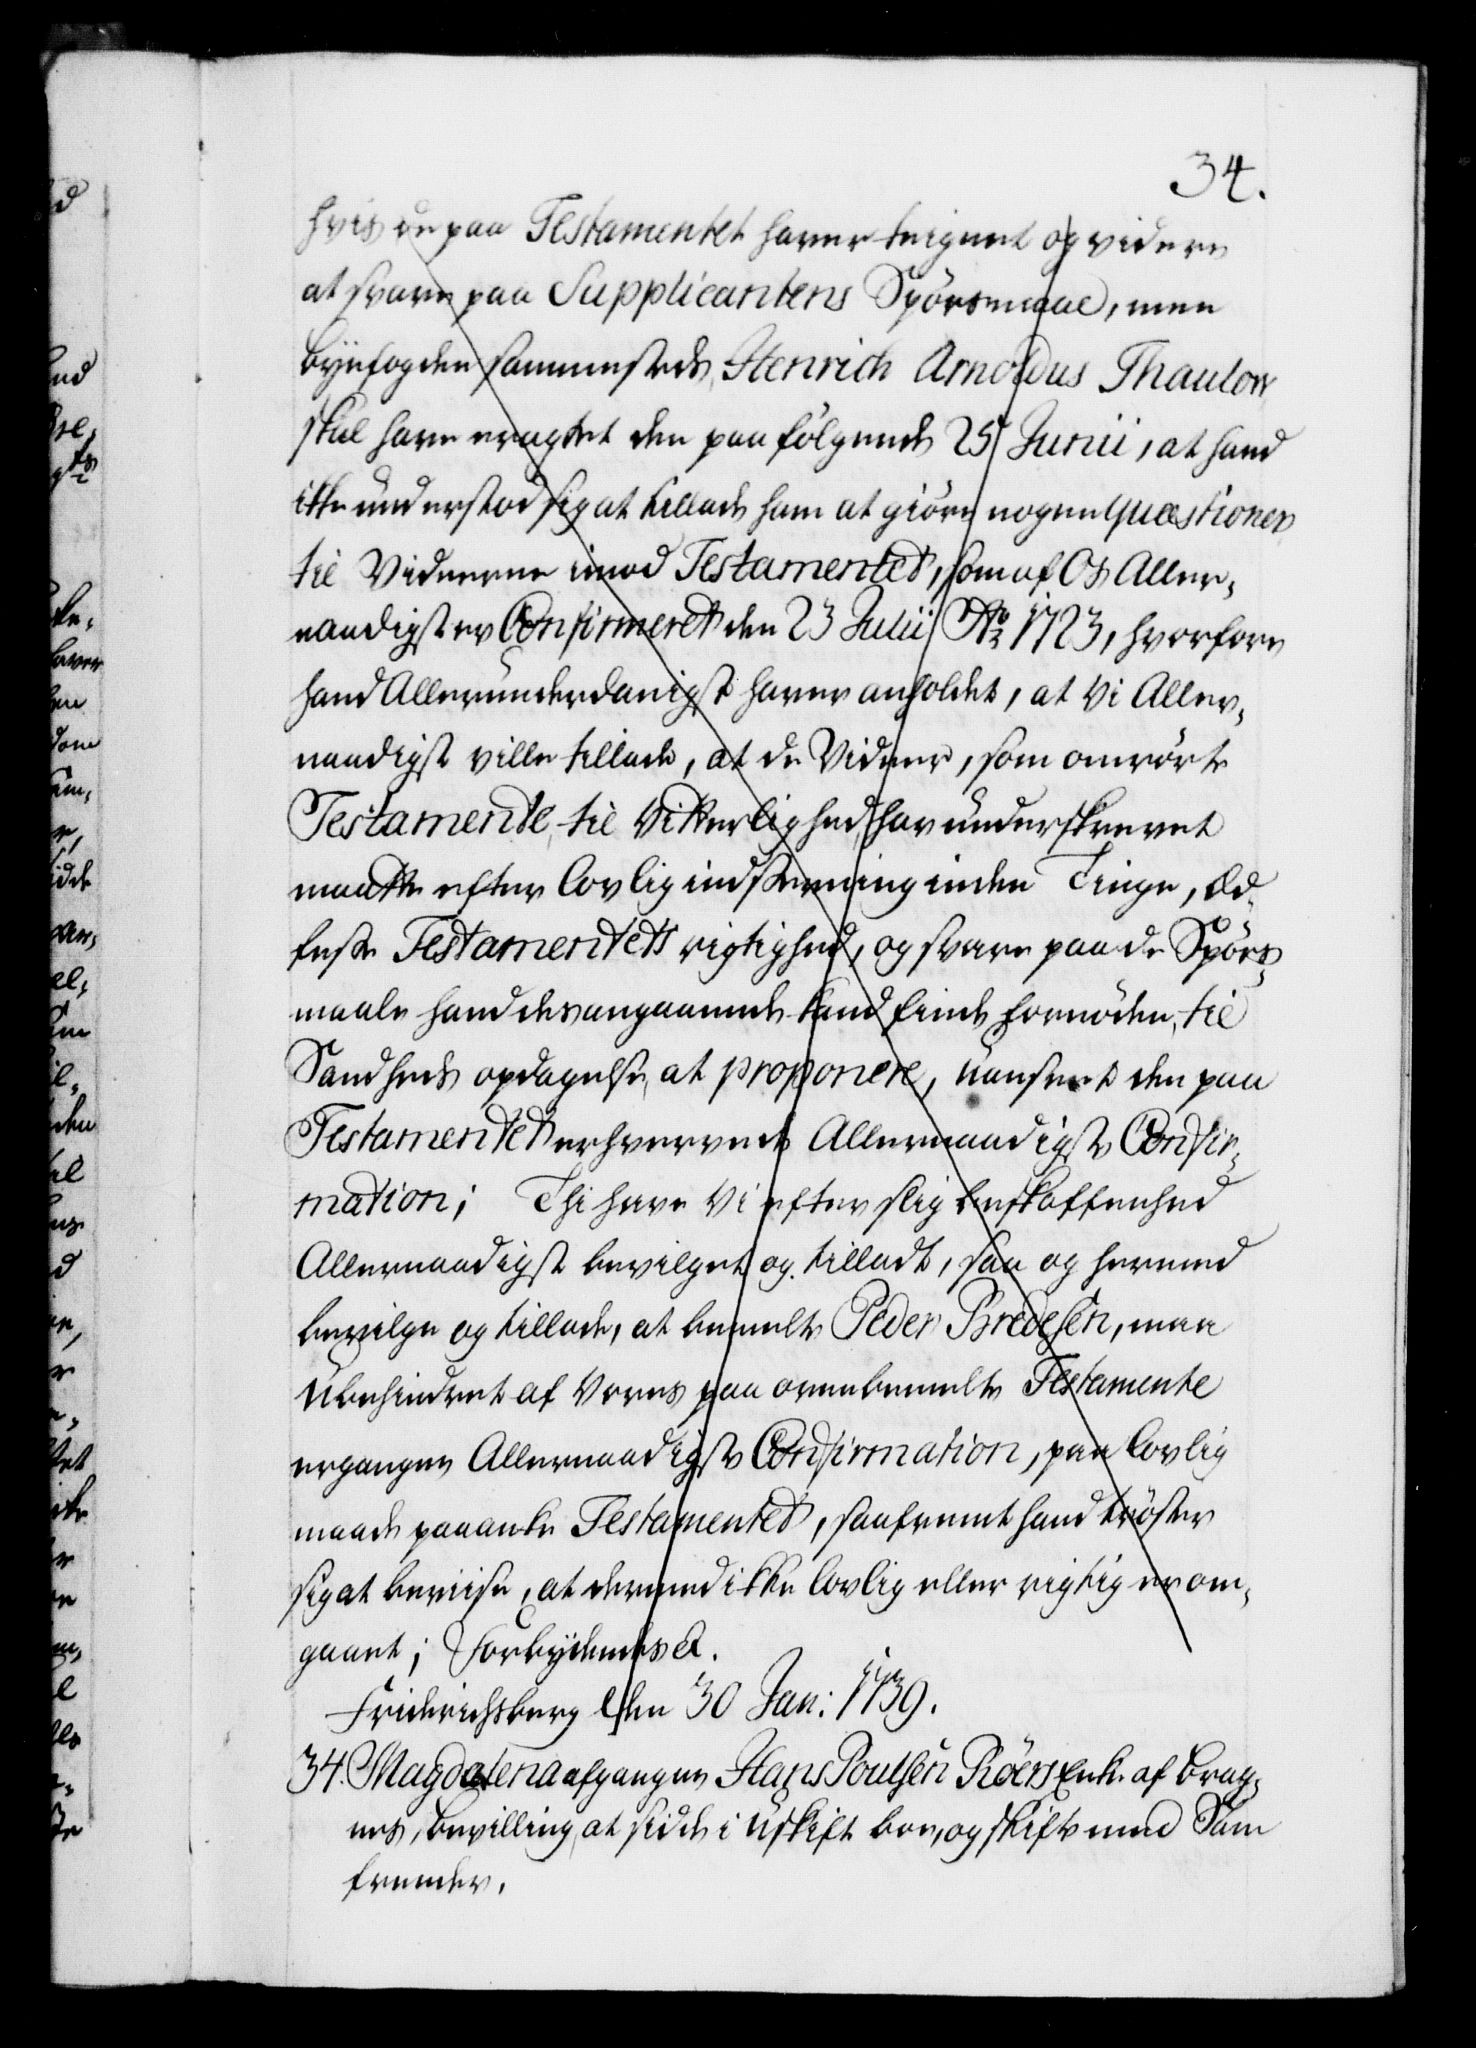 34.
hvis de paa Testamentet haver teignet og videre
at svare paa Supplicantens Spörsmaal, men
byefogden sammesteds, Henrich Arnoldus Thaulow
skal have eragtet den paafölgende 25 Junii, at hand
ikke understod sig at tillade ham at giöre nogen quæstioner
til Vidnerne imod Testamentet, som af Os Aller-
naadigst er Confirmeret den 23 Julii Ao 1723, hvorfore
hand Allerunderdanigst haver anholdet, at Vi Aller-
naadigst ville tillade, at de Vidner, som omrörte
Testamente til Vitterlighed har underskrevet
maatte efter lovlig indstevning inden Tinge, Ed-
feste Testamentets rigtighed, og svare paa de Spörs-
maale hand desangaaende kand finde fornöden, til
Sandheds opdagelse, at proponere, uanseet den paa
Testamentet erhvervede Allernaadigste Confir-
mation; Thi have Vi efter slig beskaffenhed
Allernaadigst bevilget og tilladt, saa og hermed
bevilge og tillade, at bemelte Peder Bredesen, maa
Ubehindret af Vores paa ovenbemelte Testamente
ergangen Allernaadigste Confirmation, paa lovlig
maade paaanke Testamentet, saafremt hand tröster
sig at beviise, at dermed ikke lovlig eller rigtig er om-
gaaet; Forbydendes &.
Friderichsberg den 30 Jan: 1739.
34. Magdalena afgangne Hans Poulsen Röers Enke af Brag-
nes, bevilling, at sidde i Uskift boe, og skifte med Sam
frender.